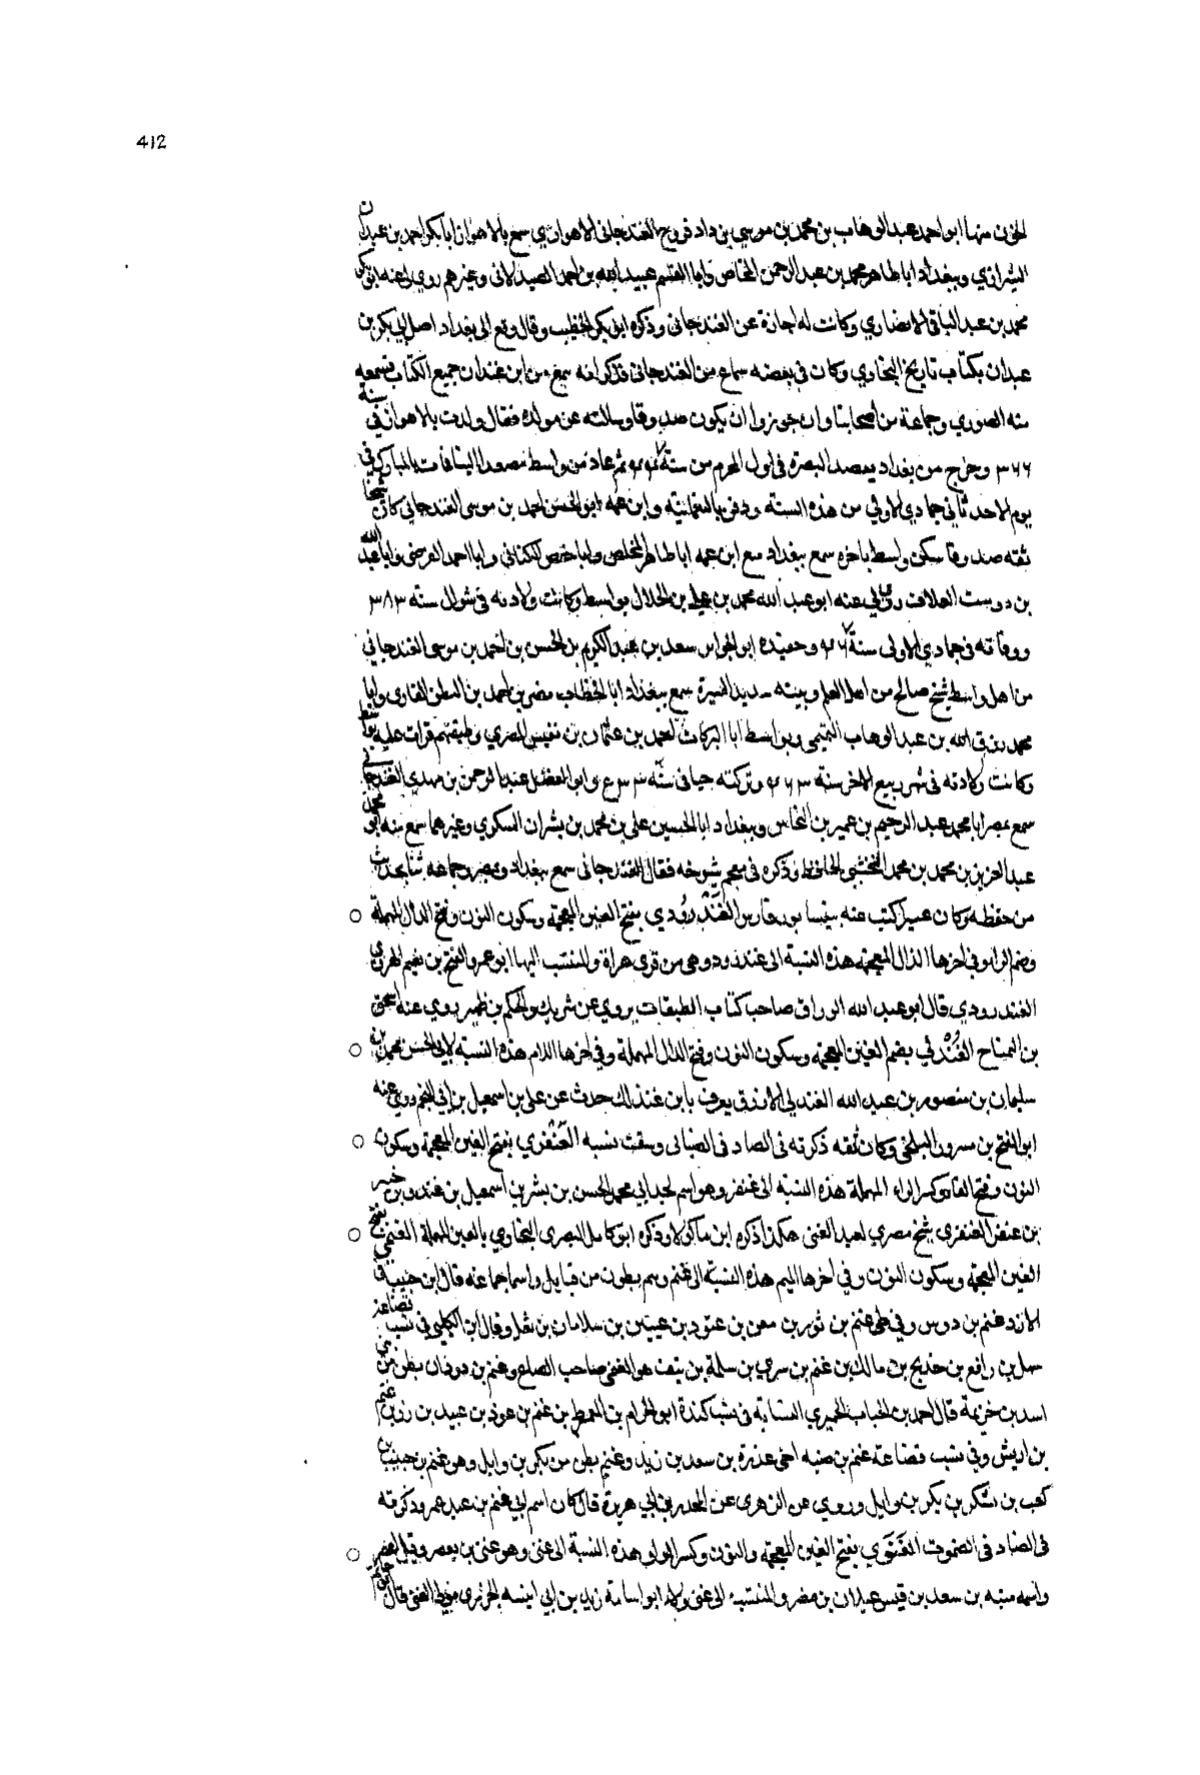 412
الخزن منها ابو احمد عبد الوهاب بن محمد بن موسي بن داد فروخ الغندجاني الاهوازي سمع بالاهواز ابا بكر احمد بن عبدان
الشيرازي وببغداد ابا طاهر محمد بن عبد الرحمن المخلص وابا القسم عبيد الله بن احمد الصيدلاني وغيرهم روي لي عنه ابو بكر
محمد بن عبد الباقي الانصاري وكانت له اجازة عن الغندجاني وذكره ابو بكر الخطيب وقال وقع الى بغداد اصل ابي بكر بن
عبدان بكتاب تاريخ البخاري وكان في بعضه سماع من الغندجاني فذكر انه سمع من ابن عبدان جميع الكتاب فسمعه
منه الصوري وجماعة من اصحابنا وارجو ان يكون صدوقا وسالته عن مولده فقال ولدت بالاهواز في سنة
٣٦٦ وخرج من بغداد يقصد البصرة في اول المحرم من سنة ثم عاد من واسط مصعدا الينا فمات بالمبارك في
يوم الاحد ثاني جمادي الاولي من هذه السنة ودفن بالنعمانية وابن عمه ابو الحسن احمد بن موسى الغندجاني كان شيخا
ثقة صدوقا سكن واسط باخره سمع ببغداد مع ابن عمه ابا طاهر المخلص وابا حفص الكتاني وابا احمد الفرضي وابا عبد الله
بن دوست العلاف روى لي عنه ابو عبد الله محمد بن علي بن الجلال بواسط وكانت ولادته في شوال سنه ٣٨٣
ووفاته في جمادي الاولى سنة وحفيده ابو الجوائز سعد بن عبد الكريم بن الحسن بن احمد بن موسى الغندجاني
من اهل واسط شيخ صالح من اهل العلم وبيته سديد السيرة سمع ببغداد ابا الخطاب نصر بن احمد بن البطر القاري وابا
محمد رزق الله بن عبد الوهاب التميمي وبواسط ابا البركات احمد بن عثمان بن نفيس المصري وطبقتهم قرات عليه بواسط
وكانت ولادته في شهر ربيع الاخر سنة وتركته حيا في سنة وابو الفضل عبد الرحمن بن مهدي الغندجاني
سمع بمصر ابا محمد عبد الرحيم بن عمير بن النحاس وببغداد ابا الحسين علي بن محمد بن بشران السكري وغيرهما سمع منه ابو محمد
عبد العزيز بن محمد بن محمد النخشبي الحافظ وذكره في معجم شيوخه فقال الغندجاني سمع ببغداد وبمصر وجماعه شاب حدث
من حفظه وكان عسيرا كتبت عنه بنيسابور بفارس الغَنْدْرُوْدي بفتح الغين المعجمة وسكون النون وفتح الدال المهملة ○
وضم الراء وفي اخرها الذال المعجمة هذه النسبة الى غندرود وهي من قرى هراة والمنتسب اليها ابو عمرو الفتح بن نعيم الهروي
الغندرودي قال ابو عبد الله الوراق صاحب كتاب الطبقات يروي عن شريك والحكم بن ظهير روي عنه اسحق
بن الهياج الغُنْدُلي بضم الغين المعجمة وسكون النون وفتح الدال المهملة وفي اخرها اللام هذه النسبة لابي الحسن محمد بن ○
سليمان بن منصور بن عبد الله الغندلي الازرق يعرف بابن غندلك حدث عن علي بن اسمعيل بن ابي النجم روي عنه
ابو الفتح بن مسرور البلخي وكان ثقه ذكرته في الصاد في الضبائى وسقت نسبه الغَنْفَري بفتح الغين المعجمة وسكون ○
النون وفتح الفا وكسر الراء المهملة هذه النسبة الى غنفر وهو اسم لجد ابي محمد الحسن بن بشر بن اسمعيل بن غندو بن خير
بن غنفر الغنفري شيخ مصري لعبد الغني هكذا ذكره ابن ماكولا وذكره ابو كامل البصرى البخاري بالعين المهملة الغنمي بفتح ○
الغين المعجمة وسكون النون وفي اخرها الميم هذه النسبة الى غنم وهم بطون من قبايل واسما جماعه قال ابن حبيب في
الازد غنم بن دوس وفي طي غنم بن ثور بن معن بن عتود بن عنين بن سلامان بن ثعل وقال ابن الكلبي في نسب قضاعة
سهل بن رافع بن خديج بن مالك بن غنم بن سري بن سلمة بن انيف هو الغنمي صاحب الصاع وغنم بن دودان بطن من
اسد بن خزيمة قال احمد بن الحباب الحميري النسابة في نسب كندة ابو الحرام بن العمرط بن غنم بن عوذ بن عبيد بن زر بن غنم
بن اريش وفي نسب قضاعة غنم بن ضنه اخي عذرة بن سعد بن زيد وغنم بطن من بكر بن وايل وهو غنم بن حبيب بن
كعب بن يشكر بن بكر بن وايل وروي عن الزهري عن المحرر بن ابي هريرة قال كان اسم ابي غنم بن عبد عمرو ذكرته
في الضاد في الضموت الغَنَوي بفتح الغين المعجمة والنون وكسر الواو هذه النسبة الى غنى وهو غنى بن يعصر وقيل اعصر ○
واسمه منبه بن سعد بن قيس عيلان بن مضر والمنتسب الى غنى ولاء ابو اسامة زيد بن ابي انيسه الجزري مولى الغني قال